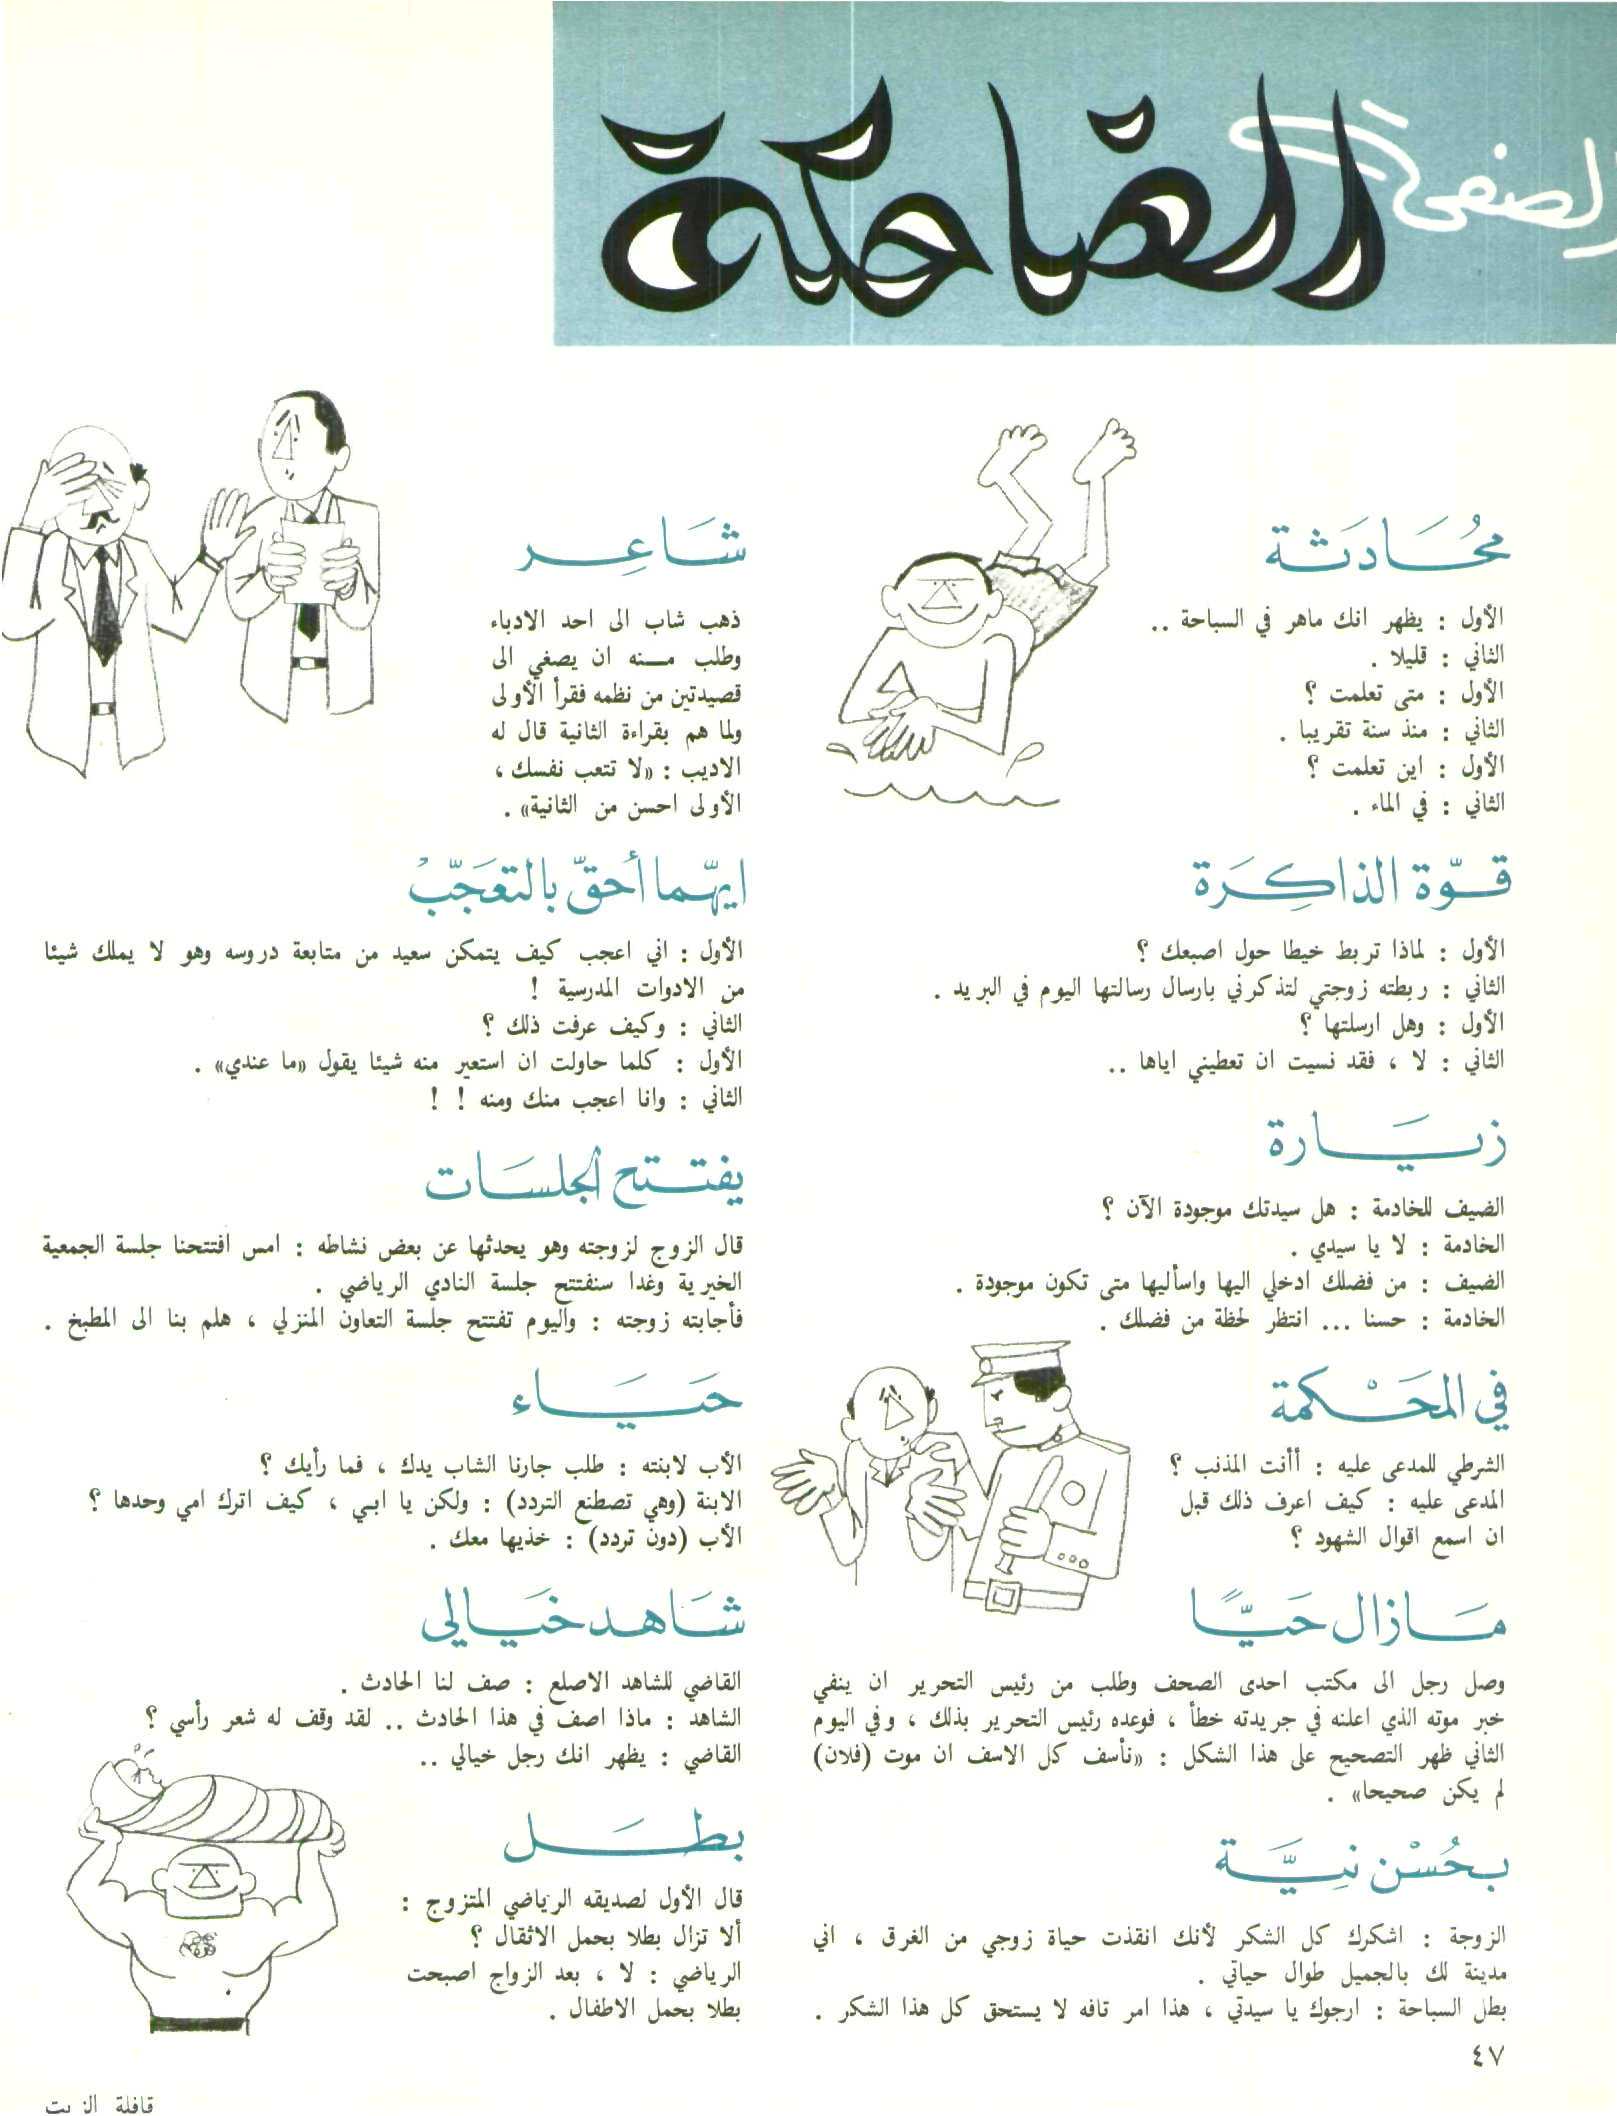 الصفحة
الضاحكة
مُحَادَثة
الأول : يظهر انك ماهر في السباحة ..
الثاني : قليلا .
الأول : متى تعلمت ؟
الثاني : منذ سنة تقريبا .
الأول : اين تعلمت ؟
الثاني : في الماء .
قوّة الذاكِرَة
الأول : لماذا تربط خيطا حول اصبعك ؟
الثاني : ربطته زوجتي لتذكرني بارسال رسالتها اليوم في البريد .
الأول : وهل ارسلتها ؟
الثاني : لا ، فقد نسيت ان تعطيني اياها ..
زيَارة
الضيف للخادمة : هل سيدتك موجودة الآن ؟
الخادمة : لا يا سيدي .
الضيف : من فضلك ادخلي اليها واسأليها متى تكون موجودة .
الخادمة : حسنا ... انتظر لحظة من فضلك .
في المَحَكْمَة
الشرطي للمدعى عليه : أأنت المذنب ؟
المدعى عليه : كيف اعرف ذلك قبل
ان اسمع اقوال الشهود ؟
مَازال حَيًّا
وصل رجل الى مكتب احدى الصحف وطلب من رئيس التحرير ان ينفي
خبر موته الذي اعلنه في جريدته خطأ ، فوعده رئيس التحرير بذلك ، وفي اليوم
الثاني ظهر التصحيح على هذا الشكل : «نأسف كل الاسف ان موت (فلان)
لم يكن صحيحا» .
بحُسْن نِيَّة
الزوجة : اشكرك كل الشكر لأنك انقذت حياة زوجي من الغرق ، اني
مدينة لك بالجميل طوال حياتي .
بطل السباحة : ارجوك يا سيدتي ، هذا امر تافه لا يستحق كل هذا الشكر .
٤٧
شَاعِر
ذهب شاب الى احد الادباء
وطلب منه ان يصغي الى
قصيدتين من نظمه فقرأ الأولى
ولما هم بقراءة الثانية قال له
الاديب : «لا تتعب نفسك ،
الأولى احسن من الثانية» .
ايهّما أحقّ بالتعَجّبْ
الأول : اني اعجب كيف يتمكن سعيد من متابعة دروسه وهو لا يملك شيئا
من الادوات المدرسية !
الثاني : وكيف عرفت ذلك ؟
الأول : كلما حاولت ان استعير منه شيئا يقول «ما عندي» .
الثاني : وانا اعجب منك ومنه ! !
يفتتح الجلسَات
قال الزوج لزوجته وهو يحدثها عن بعض نشاطه : امس افتتحنا جلسة الجمعية
الخيرية وغدا سنفتتح جلسة النادي الرياضي .
فأجابته زوجته : واليوم تفتتح جلسة التعاون المنزلي ، هلم بنا الى المطبخ .
حَيَاء
الأب لابنته : طلب جارنا الشاب يدك ، فما رأيك ؟
الابنة (وهي تصطنع التردد) : ولكن يا ابي ، كيف اترك امي وحدها ؟
الأب (دون تردد) : خذيها معك .
شَاهد خيَالي
القاضي للشاهد الاصلع : صف لنا الحادث .
الشاهد : ماذا اصف في هذا الحادث .. لقد وقف له شعر رأسي ؟
القاضي : يظهر انك رجل خيالي ..
بطَل
قال الأول لصديقه الرياضي المتزوج :
ألا تزال بطلا بحمل الاثقال ؟
الرياضي : لا ، بعد الزواج اصبحت
بطلا بحمل الاطفال .
قافلة الزيت